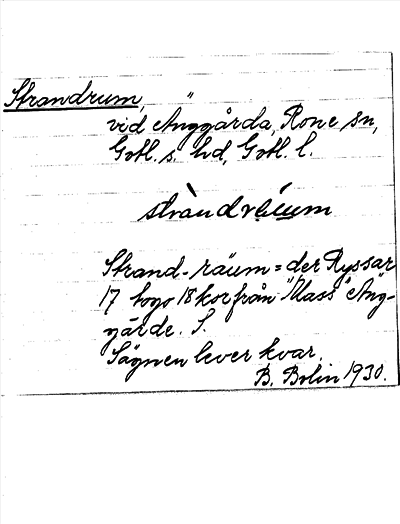 Strandrum,
vid Anggårda, Rone sn,
Gotl. s. hd, Gotl. l.
stràndrǘum
Strand-räum = der Ryssar
17 togo 18 kor från "Mass" Ang-
gårde. S.
Sägnen lever kvar.
B. Bolin 1930.